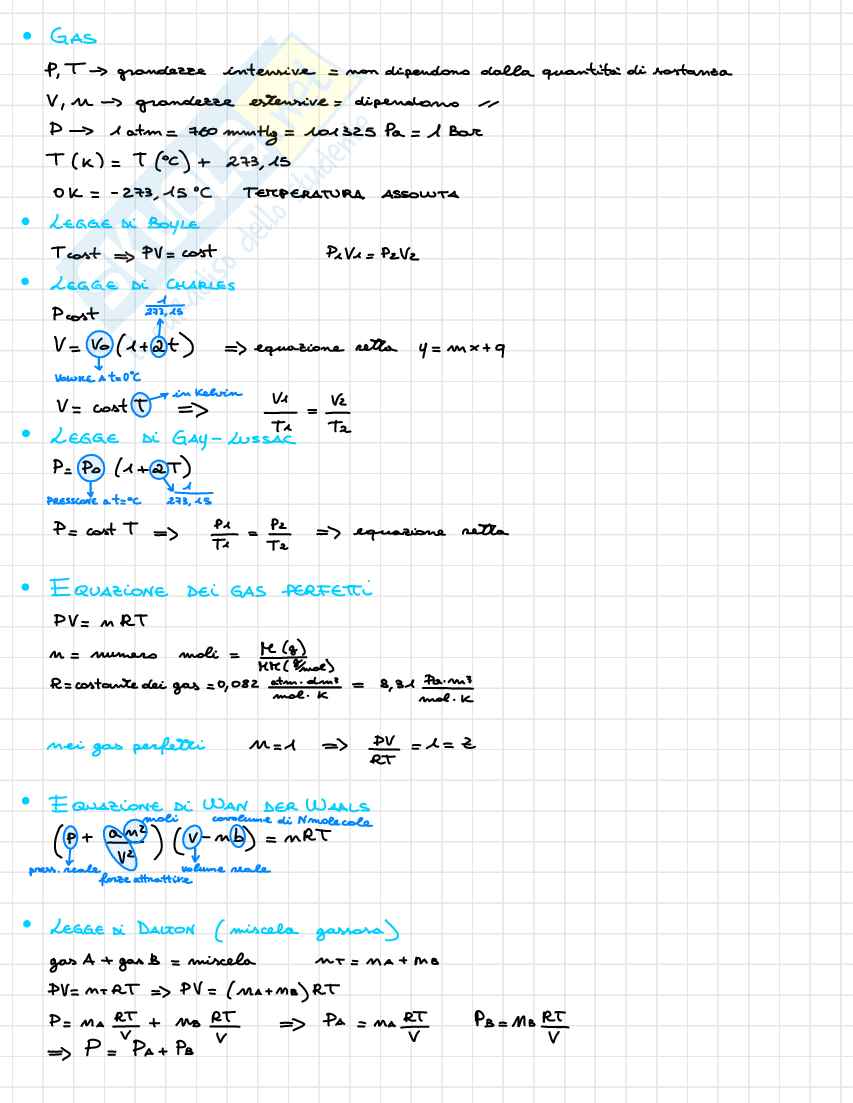 • GAS
P, T → grandezze intensive = non dipendono dalla quantità di sostanza
V, n → grandezze estensive = dipendono //
P → 1 atm = 760 mmHg = 101325 Pa = 1 Bar
T (K) = T (°C) + 273,15
0K = -273,15 °C TEMPERATURA ASSOLUTA
• LEGGE DI BOYLE
T cost ⇒ PV = cost P1V1 = P2V2
• LEGGE DI CHARLES
P cost 1/273,15
V = V0 (1+2t) ⇒ equazione retta y = mx+q
VOLUME A t=0°C
V = cost T → in Kelvin ⇒ V1/T1 = V2/T2
• LEGGE DI GAY-LUSSAC
P = P0 (1+2T)
PRESSIONE a t=°C 1/273,15
P = cost T ⇒ P1/T1 = P2/T2 ⇒ equazione retta
• EQUAZIONE DEI GAS PERFETTI
PV = nRT
n = numero moli = M (g)/MM (g/mol)
R = costante dei gas = 0,082 atm·dm³/mol·K = 8,31 Pa·m³/mol·K
nei gas perfetti n=1 ⇒ PV/RT = 1 = Z
• EQUAZIONE DI WAN DER WAALS
moli covolume di N molecole
(P + an²/V²) (V - nb) = nRT
press. reale forze attrattive volume reale
• LEGGE DI DALTON (miscela gassosa)
gas A + gas B = miscela nT = nA + nB
PV = nT RT ⇒ PV = (nA + nB) RT
P = nA RT/V + nB RT/V ⇒ PA = nA RT/V PB = nB RT/V
⇒ P = PA + PB